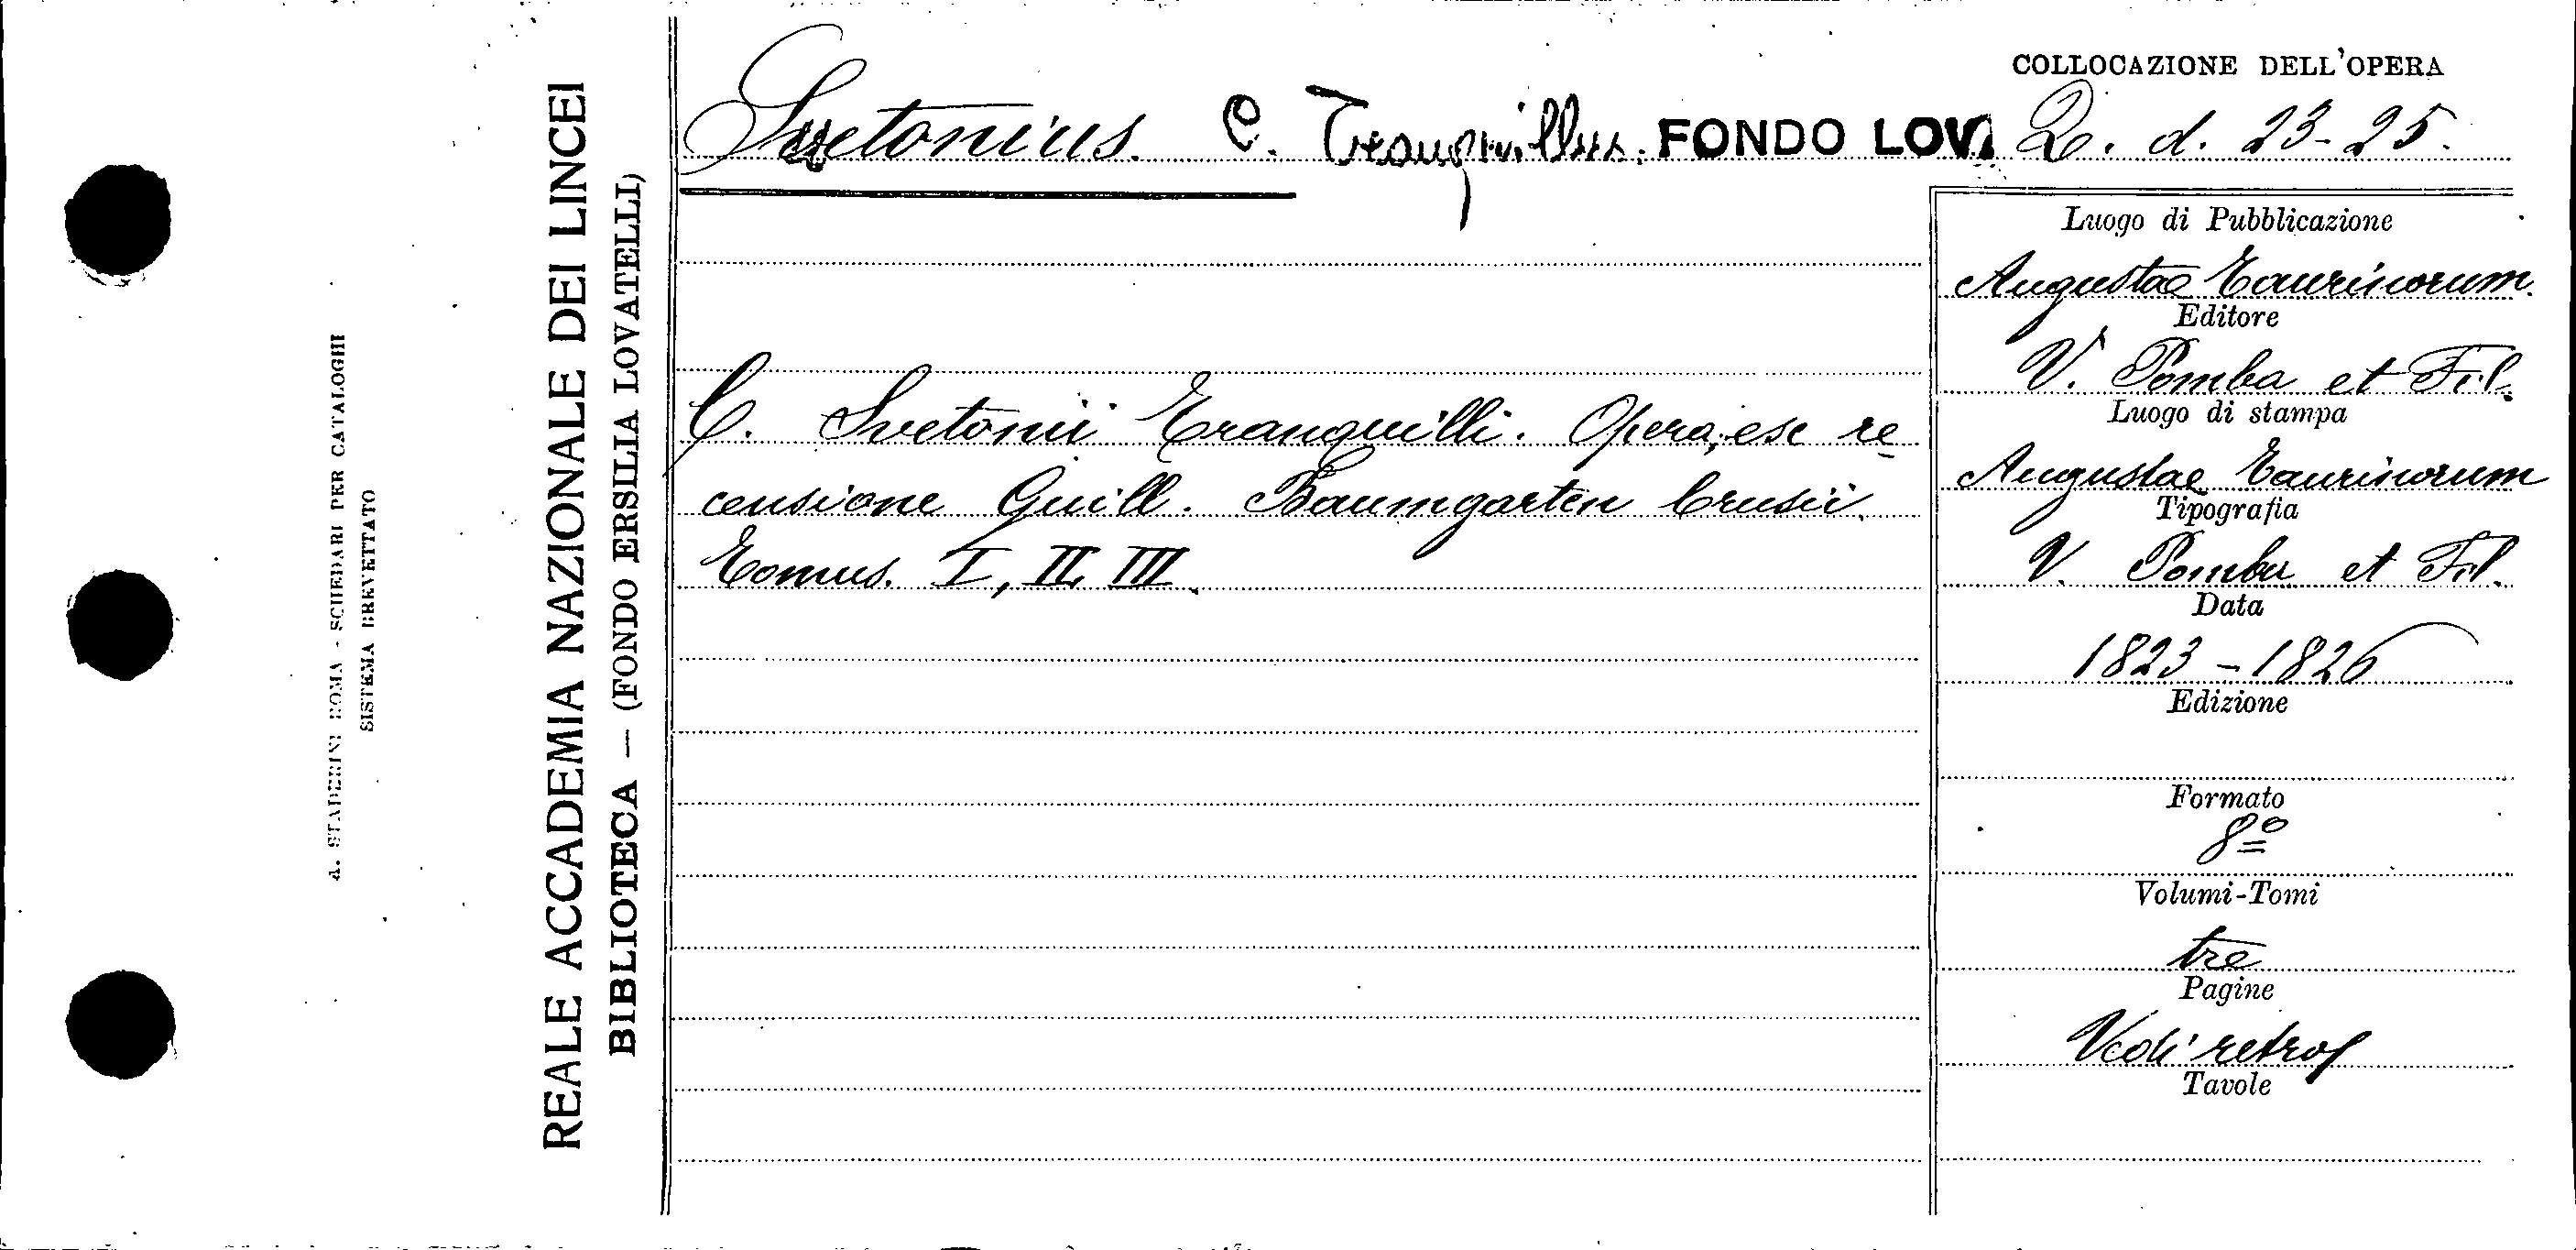 A. STADERINI ROMA - SCHEDARI PER CATALOGHI
SISTEMA BREVETTATO
REALE ACCADEMIA NAZIONALE DEI LINCEI
BIBLIOTECA — (FONDO ERSILIA LOVATELLI)
COLLOCAZIONE DELL'OPERA
Suetonius. C. Tranquillus. FONDO LOV. Q. d. 23-25.
C. Svetonii Tranquilli. Opera, ex re
censione Guill. Baumgarten Crusii.
Tomus. I, II, III.
Luogo di Pubblicazione
Augustae Taurinorum.
Editore
V. Pomba et Fil.
Luogo di stampa
Augustae Taurinorum
Tipografia
V. Pomba et Fil.
Data
1823-1826
Edizione
Formato
8º
Volumi-Tomi
tre
Pagine
Vedi retro
Tavole